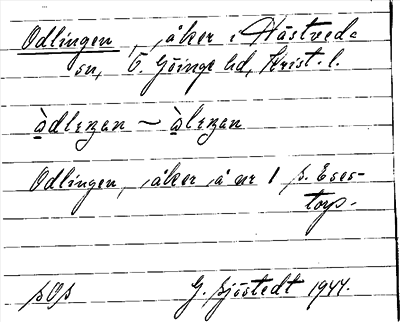 Odlingen, åker i Hästveda
sn, Ö. Göinge hd, Krist. l.
àdlıŋan ~ àlıŋan
Odlingen, åker å nr 1 på Eses-
torp.
G. Sjöstedt 1944.